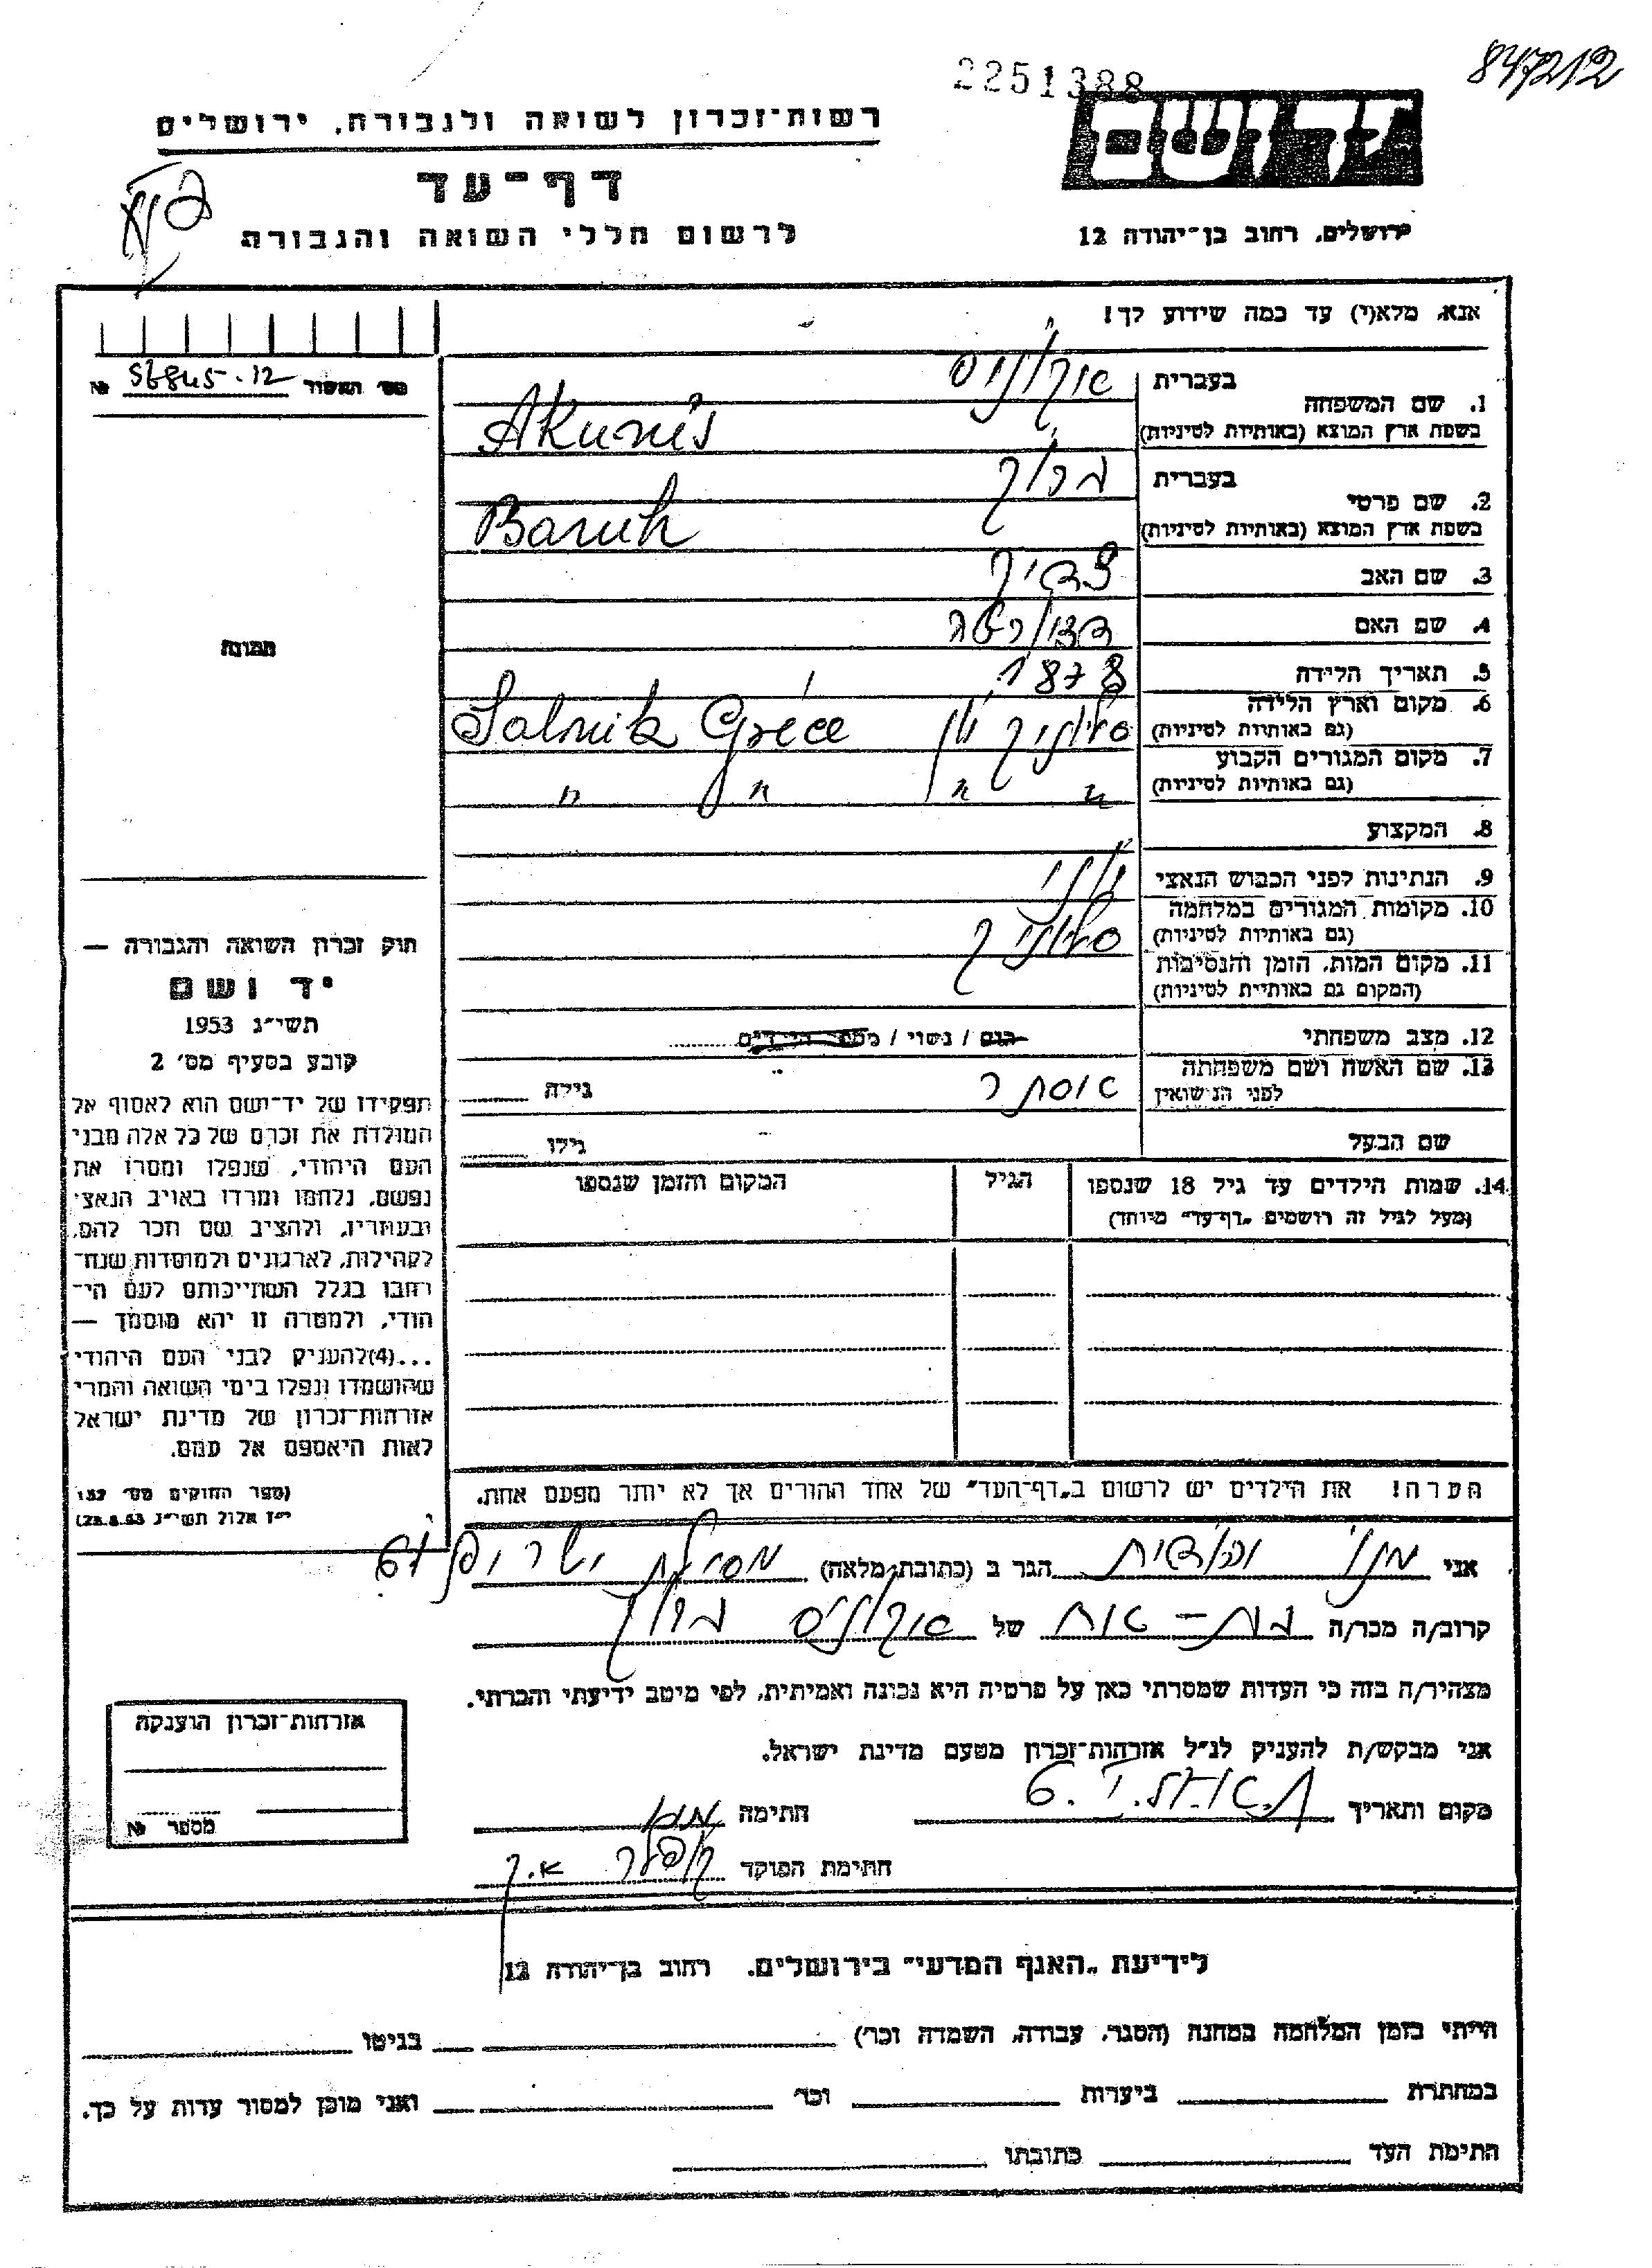 847212
2251388
רשות־זכרון לשואה ולגבורה, ירושלים
דף־עד
לרשום חללי השואה והגבורה
ירושלים, רחוב בן־יהודה 12
אנא, מלא(י) עד כמה שידוע לך!
מס׳ תאשור 56845.12 №
1. שם המשפחה בעברית אקוניס
בשפת ארץ המוצא (באותיות לטיניות) Akunis
2. שם פרטי בעברית ברוך
בשפת ארץ המוצא (באותיות לטיניות) Baruh
3. שם האב
4. שם האם
5. תאריך הלידה 1878
6. מקום וארץ הלידה
(גם באותיות לטיניות) סלוניק יון Salonik Gréce
7. מקום המגורים הקבוע
(גם באותיות לטיניות) " " " "
8. המקצוע
9. הנתינות לפני הכבוש הנאצי יוני
10. מקומות המגורים במלחמה
(גם באותיות לטיניות) סלוניק
11. מקום המות, הזמן והנסיבות
(המקום גם באותיות לטיניות)
12. מצב משפחתי רווק / נשוי / מספר הילדים
13. שם האשה ושם משפחתה
לפני הנישואין אסתר גילה
שם הבעל גילו
14. שמות הילדים עד גיל 18 שנספו הגיל המקום והזמן שנספו
(מעל לגיל זה רושמים „דף־עד” מיוחד)
תמונה
חוק זכרון השואה והגבורה —
יד ושם
תשי״ג 1953
קובע בסעיף מס׳ 2
תפקידו של יד־ושם הוא לאסוף אל
המולדת את זכרם של כל אלה מבני
העם היהודי, שנפלו ומסרו את
נפשם, נלחמו ומרדו באויב הנאצי
ובעוזריו, ולהציב שם וזכר להם,
לקהילות, לארגונים ולמוסדות שנח־
רבו בגלל השתייכותם לעם הי־
הודי, ולמטרה זו יהא מוסמך —
...(4)להעניק לבני העם היהודי
שהושמדו ונפלו בימי השואה והמרי
אזרחות־זכרון של מדינת ישראל
לאות היאספם אל עמם.
(ספר החוקים מס׳ 132
י״ז אלול תשי״ג 28.8.53)
הערה! את הילדים יש לרשום ב„דף־העד” של אחד ההורים אך לא יותר מפעם אחת.
אני הגר ב (כתובת מלאה) מסילת ישרים
קרוב/ה מכר/ה בת-אח של אקוניס ברוך
מצהיר/ה בזה כי העדות שמסרתי כאן על פרטיה היא נכונה ואמיתית, לפי מיטב ידיעתי והכרתי.
אני מבקש/ת להעניק לנ״ל אזרחות־זכרון מטעם מדינת ישראל.
מקום ותאריך חתימה
חתימת הפוקד
אזרחות־זכרון הוענקה
מספר №
לידיעת „האגף המדעי” בירושלים. רחוב בן־יהודה 12
הייתי בזמן המלחמה במחנה (הסגר, עבודה, השמדה וכו׳) בגיטו
במחתרת ביערות וכו׳ ואני מוכן למסור עדות על כך.
חתימת העד כתובתו